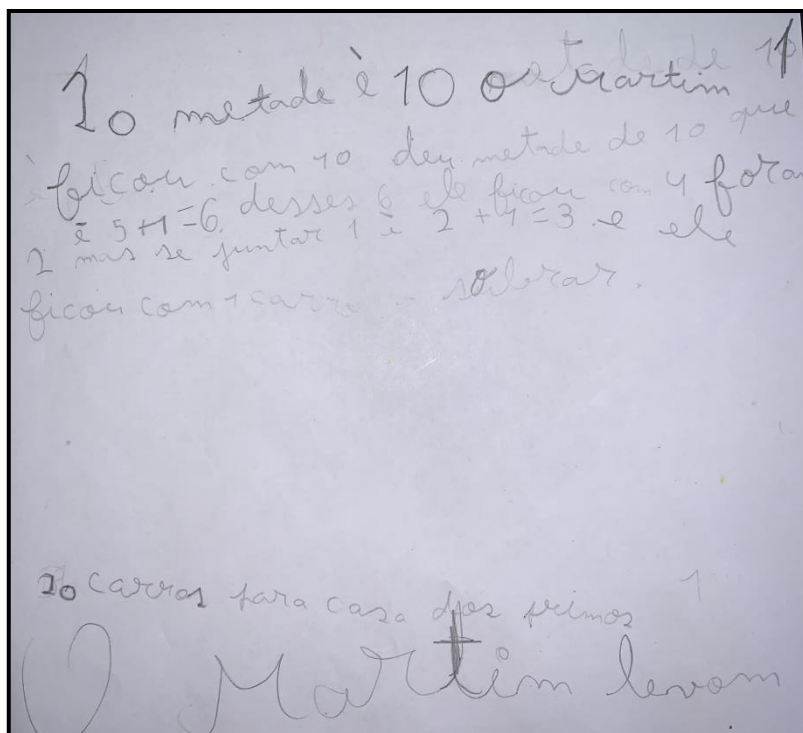 20 metade è 10 o Martim
ficou com 10 deu metade de 10 que
è 5+1=6 desses 6 ele ficou com 4 foram
2 mas se juntar 1 è 2+1=3 e ele
ficou com 1 carro sobrar.
20 carros para casa dos primos
O Martim levam